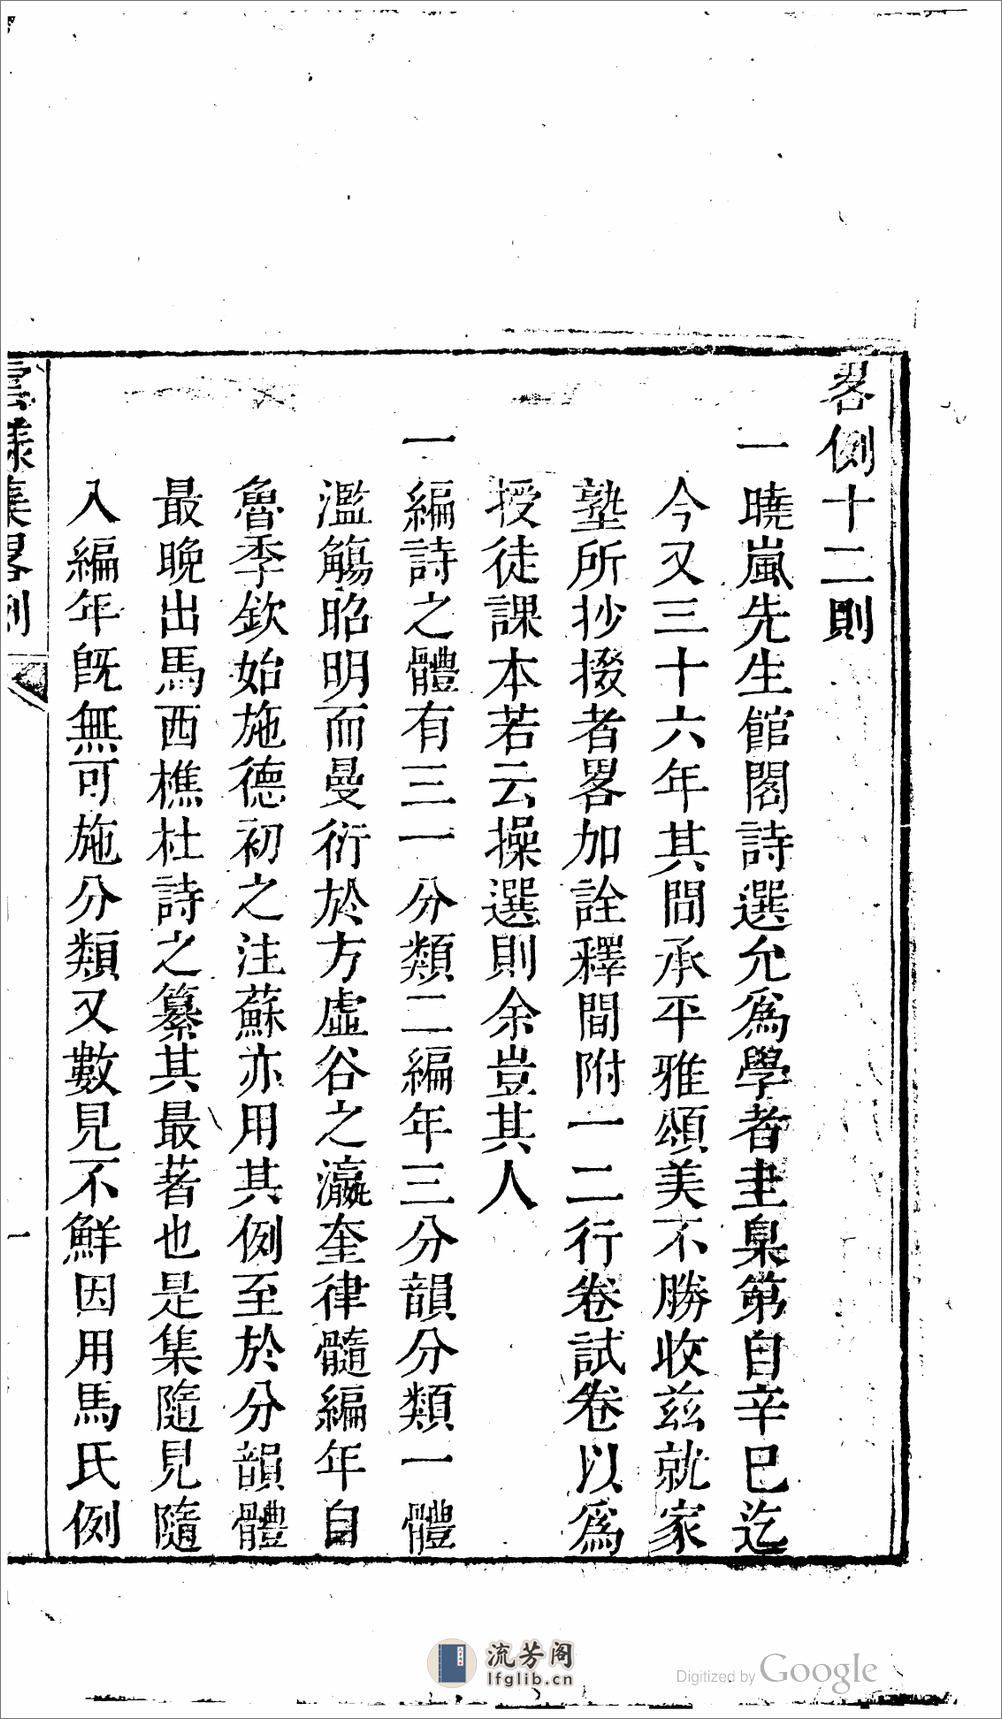 畧例十二則
一曉嵐先生館閣詩選允爲學者圭臬第自辛巳迄
今又三十六年其間承平雅頌美不勝收兹就家
塾所抄掇者畧加詮釋間附一二行卷試卷以爲
授徒課本若云操選則余豈其人
一編詩之體有三一分類二編年三分韻分類一體
濫觴昭明而曼衍於方虛谷之瀛奎律髓編年自
魯季欽始施德初之注蘇亦用其例至於分韻體
最晚出馬西樵杜詩之纂其最著也是集隨見隨
入編年旣無可施分類又數見不鮮因用馬氏例
雲樣集畧例
一
流芳阁
lfglib.cn
Digitized by Google